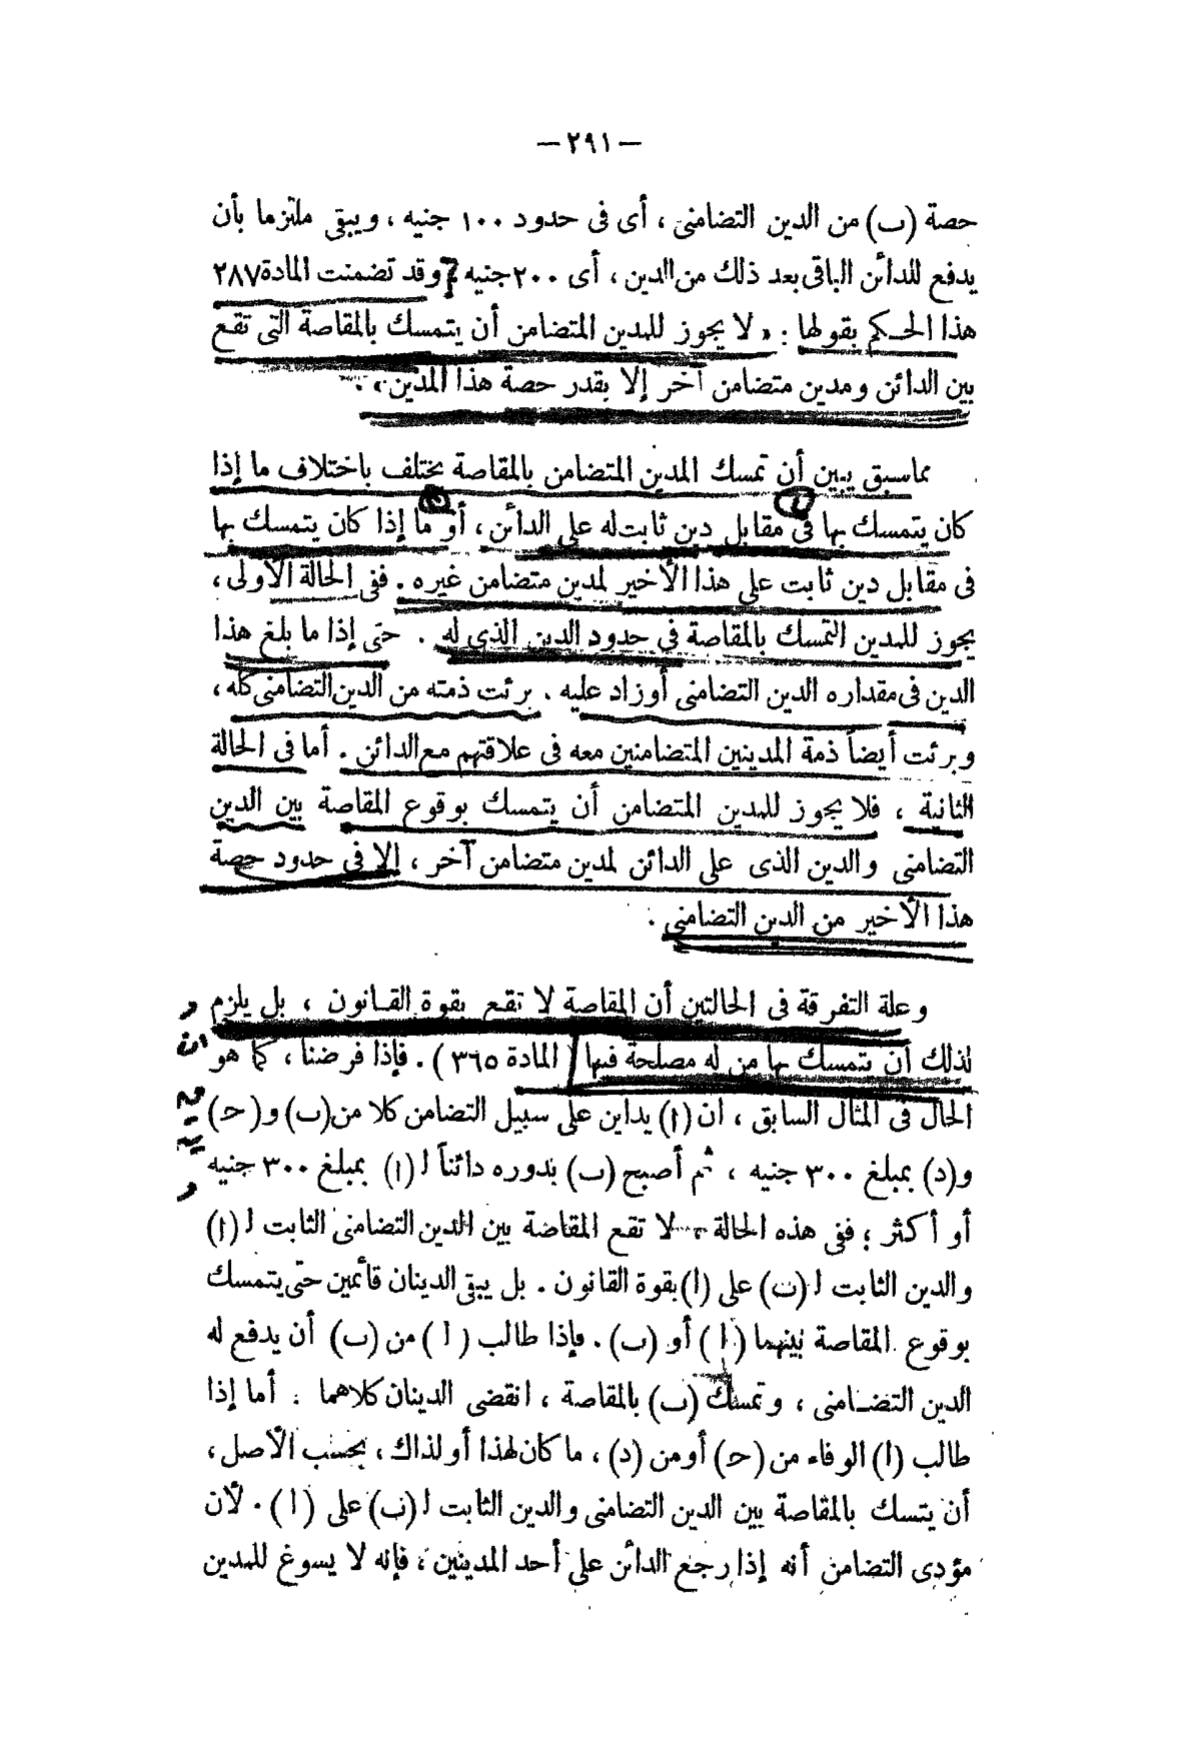 — ٢٩١ —
حصة (ب) من الدين التضامنى ، أى فى حدود ١٠٠ جنيه ، ويبقى ملتزما بأن
يدفع للدائن الباقى بعد ذلك من الدين ، أى ٢٠٠ جنيه وقد تضمنت المادة ٢٨٧
هذا الحكم بقولها : « لا يجوز للمدين المتضامن أن يتمسك بالمقاصة التى تقع
بين الدائن ومدين متضامن آخر إلا بقدر حصة هذا المدين » .
مما سبق يبين أن تمسك المدين المتضامن بالمقاصة يختلف باختلاف ما إذا
كان يتمسك بها فى مقابل دين ثابت له على الدائن ، أو ما إذا كان يتمسك بها
فى مقابل دين ثابت على هذا الأخير لمدين متضامن غيره . ففى الحالة الأولى ،
يجوز للمدين التمسك بالمقاصة فى حدود الدين الذى له . حتى إذا ما بلغ هذا
الدين فى مقداره الدين التضامنى أو زاد عليه . برئت ذمته من الدين التضامنى كله ،
وبرئت أيضاً ذمة المدينين المتضامنين معه فى علاقتهم مع الدائن . أما فى الحالة
الثانية ، فلا يجوز للمدين المتضامن أن يتمسك بوقوع المقاصة بين الدين
التضامنى والدين الذى على الدائن لمدين متضامن آخر ، إلا فى حدود حصة
هذا الأخير من الدين التضامنى .
وعلة التفرقة فى الحالتين أن المقاصة لا تقع بقوة القانون ، بل يلزم
لذلك أن يتمسك بها من له مصلحة فيها ( المادة ٣٦٥ ) . فإذا فرضنا ، كما هو
الحال فى المثال السابق ، أن (ا) يداين على سبيل التضامن كلا من (ب) و (ح)
و (د) بمبلغ ٣٠٠ جنيه ، ثم أصبح (ب) بدوره دائناً لـ (ا) بمبلغ ٣٠٠ جنيه
أو أكثر ؛ ففى هذه الحالة ، لا تقع المقاصة بين الدين التضامنى الثابت لـ (ا)
والدين الثابت لـ (ب) على (ا) بقوة القانون . بل يبقى الدينان قائمين حتى يتمسك
بوقوع المقاصة بينهما (ا) أو (ب) . فإذا طالب (ا) من (ب) أن يدفع له
الدين التضامنى ، وتمسك (ب) بالمقاصة ، انقضى الدينان كلاهما . أما إذا
طالب (ا) الوفاء من (ح) أو من (د) ، ما كان لهذا أو لذاك ، بحسب الأصل ،
أن يتسك بالمقاصة بين الدين التضامنى والدين الثابت لـ (ب) على (ا) . لأن
مؤدى التضامن أنه إذا رجع الدائن على أحد المدينين ، فإنه لا يسوغ للمدين